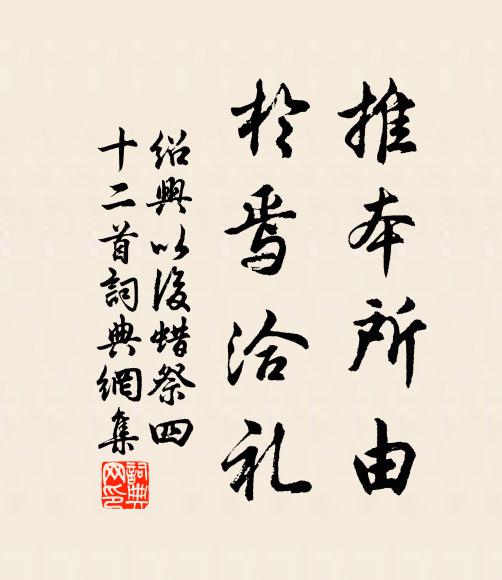 推本所由
於焉洽礼
紹興以後蜡祭四
十二首詞典網集
詞典网印